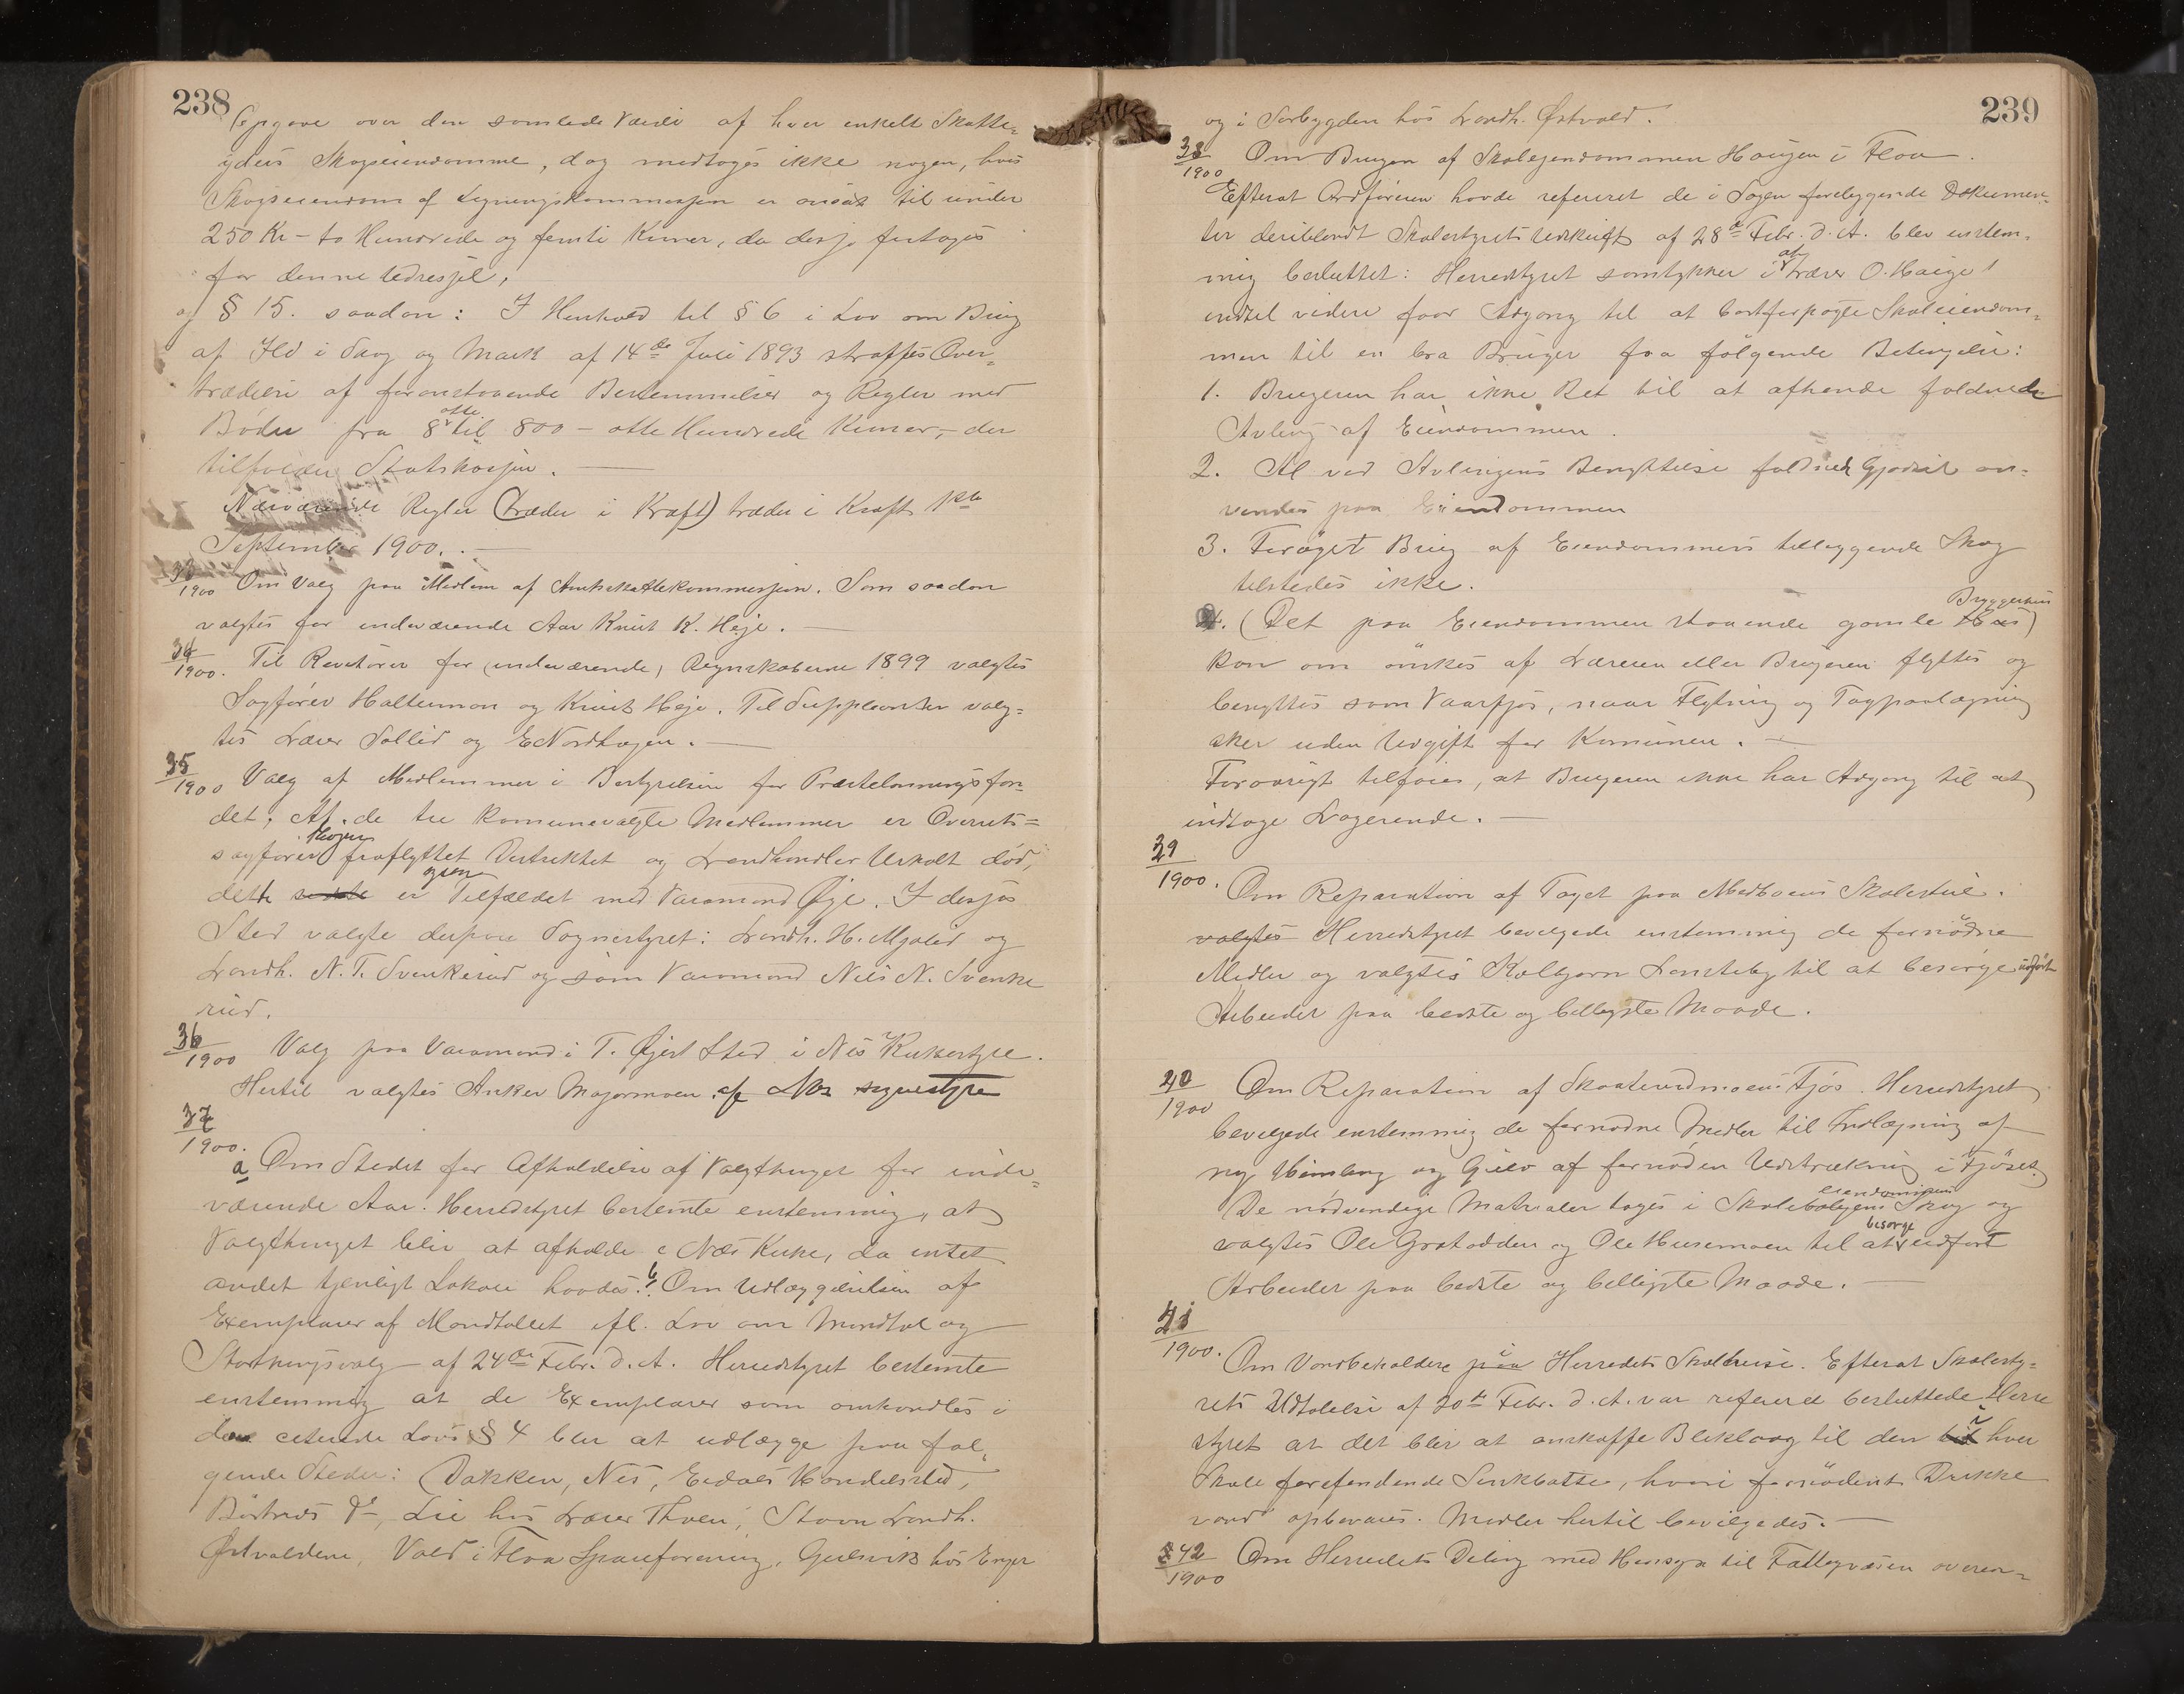 238
Opgave over den samlede Værdi af hver enkelt Skatte=
yders Skogseiendomme, dog medtages ikke nogen, hvis
Skogseiendom af Ligningskommissjon er ansat til under
250 Kr – to Hundrede og femti Kroner, da desse fritages
for denne Udredsel,
og § 15. saadan: I Henhold til § 6 i Lov om Brug
af Ild i Skog og Mark af 14de Juli 1893 straffes Over=
trædelse af foranstaaende Bestemmelser og Regler med
Bøder fra 8 otte til 800 – otte Hundrede Kroner, – der
tilfalder Statskassen. —
Nærværende Regler (træder i Kraft) træder i Kraft 1ste
September 1900. . —
33/1900 Om Valg paa Medlem af Amtsskattekommissjon. Som saadan
valgtes for indeværende Aar Knut K. Heje. —
34/1900. Til Revisorer for (indeværende) Regnskaberne 1899 valgtes
Sagfører Haltemann og Knut Heje. Til Suppleanter valg=
tes Lærer Sollid og E Nordhagen. —
35/1900 Valg af Medlemmer i Bestyrelsen for Præstelønningsfon=
det, Af de tre komunevalgte Medlemmer er Overrets=
sagfører Thogersen fraflyttet Distriktet og Landhandler Uskolt død,
dette sidste er ogsaa Tilfældet med Varamand Øye. I desses
Sted valgte derpaa Sognestyret: Landh. H. Mjøled og
Landh. N. T. Svenkerud og som Varamand Nils N. Svenke
rud.
36/1900 Valg paa Varamand i T. Øyes Sted i Nes Kirkestyre.
Hertil valgtes Anker Majormoen af Nes sognestyre
37/1900.
a Om Stedet for Afholdelse af Valgthinget for inde=
værende Aar. Herredstyret bestemte enstemmig, at
Valgthinget blir at afholde i Næs Kirke, da intet
andet tjenligt Lokale haves. b. Om Udlæggelsen af
Exemplarer af Mandtallet ifl. Lov om Mandtal og
Storthingsvalg af 24de Febr. d. A. Herredstyret bestemte
enstemmig at de Exemplarer som omhandles i
den citerede Lovs § 4 blir at udlægge paa føl=
gende Steder: Dokken, Nes, Eidals Handelssted,
Børtnes Do, Lie hos Lærer Thoen, Stavn Landh.
Østvolden, Vold i Flaa Spareforening, Gulsvik hos Enger
239
og i Sørbygden hos Landh. Østvold.
38/1900 Om Brugen af Skoleejendommen Haugen i Flaa.
Efterat Ordføreren havde refereret de i Sagen foreliggende Dokumen=
ter deriblandt Skolestyrets Udskrift af 28de Febr. d. A. blev enstem=
mig besluttet: Herredstyret samtykker i at Lærer O. Hauge
indtil videre faar Adgang til at bortforpagte Skoleiendom=
men til en bra Bruger paa følgende Betingelser:
1. Brugeren har ikke Ret til at afhænde faldende
Avling af Eiendommen.
2. Al ved Avlingens Benyttelse faldende Gjødsel an=
vendes paa Eiendommen
3. Forøget Brug af Eiendommens tilliggende Skog
tilstedes ikke.
4. (Det paa Eiendommen staaende gamle Hus) Bryggerhus
kan om ønskes af Læreren eller Brugeren flyttes og
benyttes som Vaarfjøs, naar Flytning og Tagpaalægning
sker uden Udgift for Komunen. —
Forøvrigt tilføies, at Brugeren ikke har Adgang til at
indtage Logerende. —
39/1900. Om Reparation af Taget paa Medboens Skolestue.
valgtes Herredstyret bevilgede enstemmig de fornødne
Midler og valgtes Kolbjørn Lonsteby til at besørge udført
Arbeidet paa bedste og billigste Maade.
40/1900 Om Reparation af Skaterudmoens Fjøs. Herredstyret
bevilgede enstemmig de fornødne Midler til Indlægning af
ny Himling og Gulv af fornøden Udstrækning i Fjøset.
De nødvendige Matrialer tages i Skoleboligens eiendommens Skog og
valgtes Ole Grøtodden og Ole Husemoen til at besørge udført
Arbeidet paa bedste og billigste Maade. —
41/1900. Om Vandbeholdere paa i Herredets Skolehuse. Efterat Skolesty=
rets Udtalelse af 20de Febr. d. A. var refereret besluttede Herre
styret at det blir at anskaffe Bliklaag til den til i hver
Skole forefindende Sinkbøtte, hvori fornødent Drikke
vand opbevares. Midler hertil bevilgedes. —
42/1900 Om Herredets Deling med Hensyn til Fattigvæsen overen=